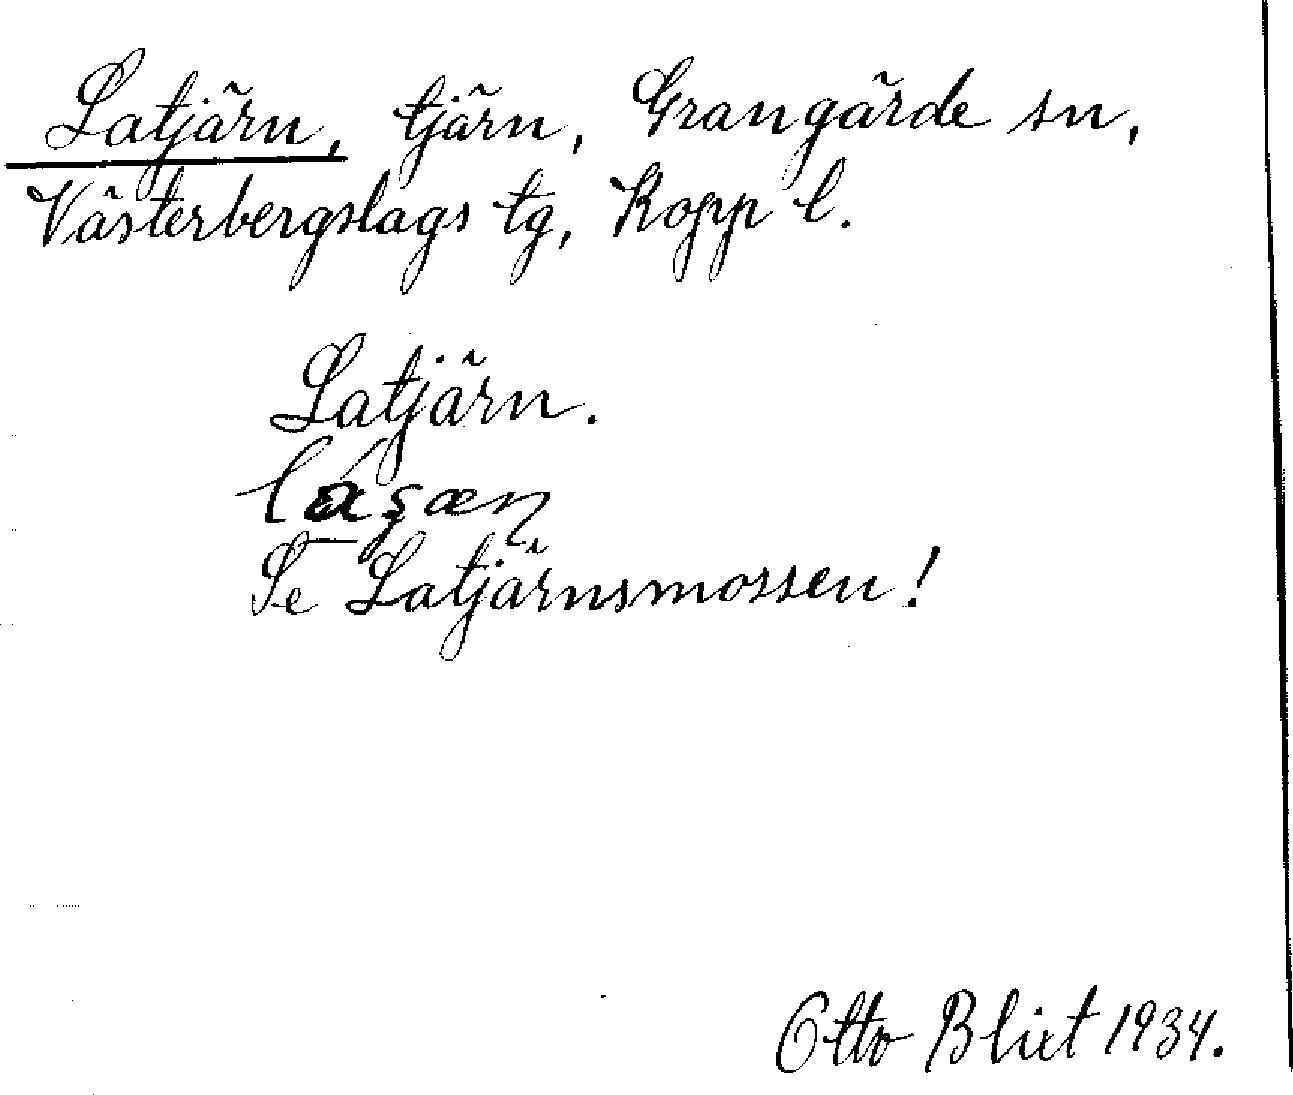 Latjärn, tjärn, Grangärde sn,
Västerbergslags tg, Kopp l.
Latjärn.
Se Latjärnsmossen!
Otto Blixt 1934.